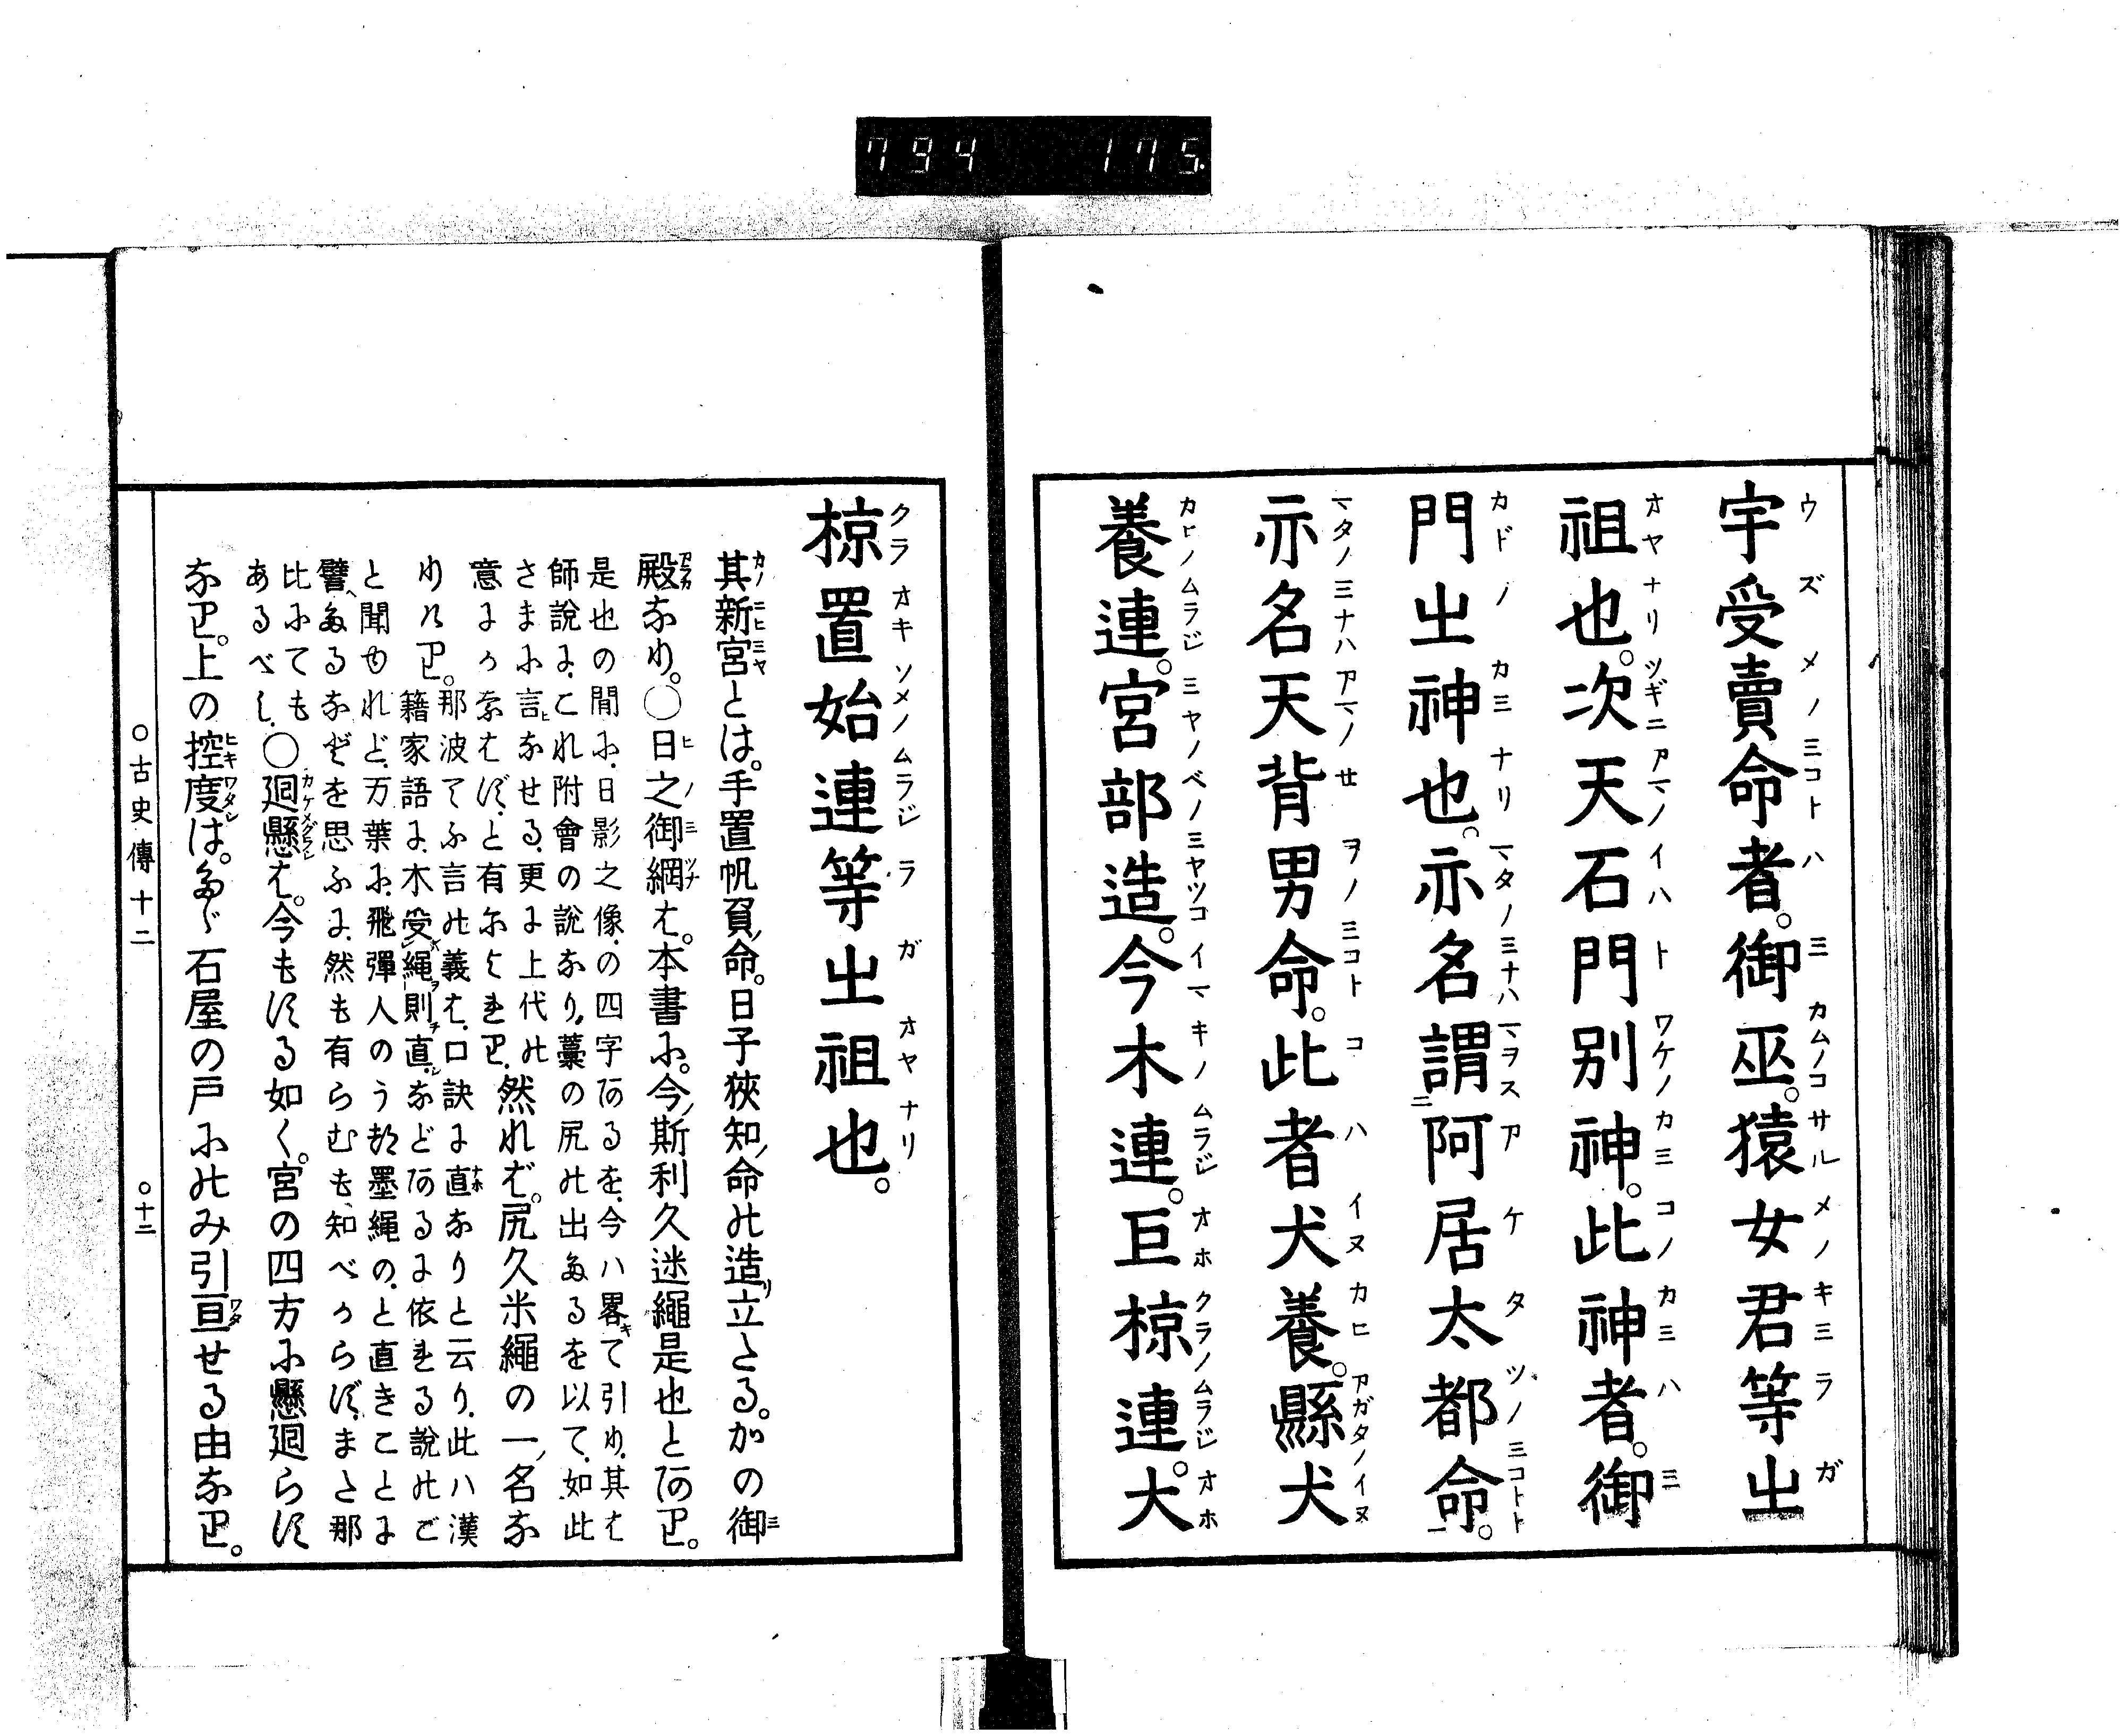 794 175
宇受賣命者。御巫。猿女君等㞢
祖也。次天石門別神。此神者。御
門㞢神也。亦名謂阿居太都命。
亦名天背男命。此者犬養。縣犬
養連。宮部造。今木連。巨椋連。大
椋置始連等㞢祖也。
其新宮とは。手置帆負命。日子狹知命の造立たる。かの御
殿なり。○日之御綱は。本書に。今斯利久迷繩是也とあり。
是也の間に、日影之像、の四字あるを、今ハ畧て引り、其は
師說に、これ附會の說なり、藁の尻の出たるを以て、如此
さまに言なせる、更に上代の
意にかなはず、と有によれり、然れば。尻久米繩の一名な
りけり。那波てふ言の義は、口訣に直なりと云り、此ハ漢
籍家語に、木受繩則直、などあるに依れる說のご
と聞ゆれど、万葉に、飛彈人のうつ墨繩の、と直きことに
譬たるなどを思ふに、然も有らむも、知べからず、また那
比にても
あるべし、○廻懸は。今もする如く。宮の四方に懸廻らす
なり。上の控度は。たゞ石屋の戸にのみ引亘せる由なり。
○古史傳十二 ○十二